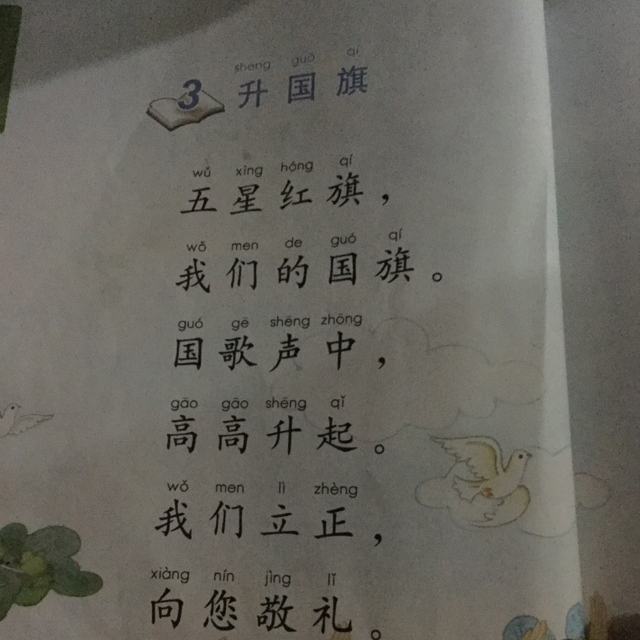 shēng guó qí
3 升国旗
wǔ xīng hóng qí
五星红旗，
wǒ men de guó qí
我们的国旗。
guó gē shēng zhōng
国歌声中，
gāo gāo shēng qǐ
高高升起。
wǒ men lì zhèng
我们立正，
xiàng nín jìng lǐ
向您敬礼。